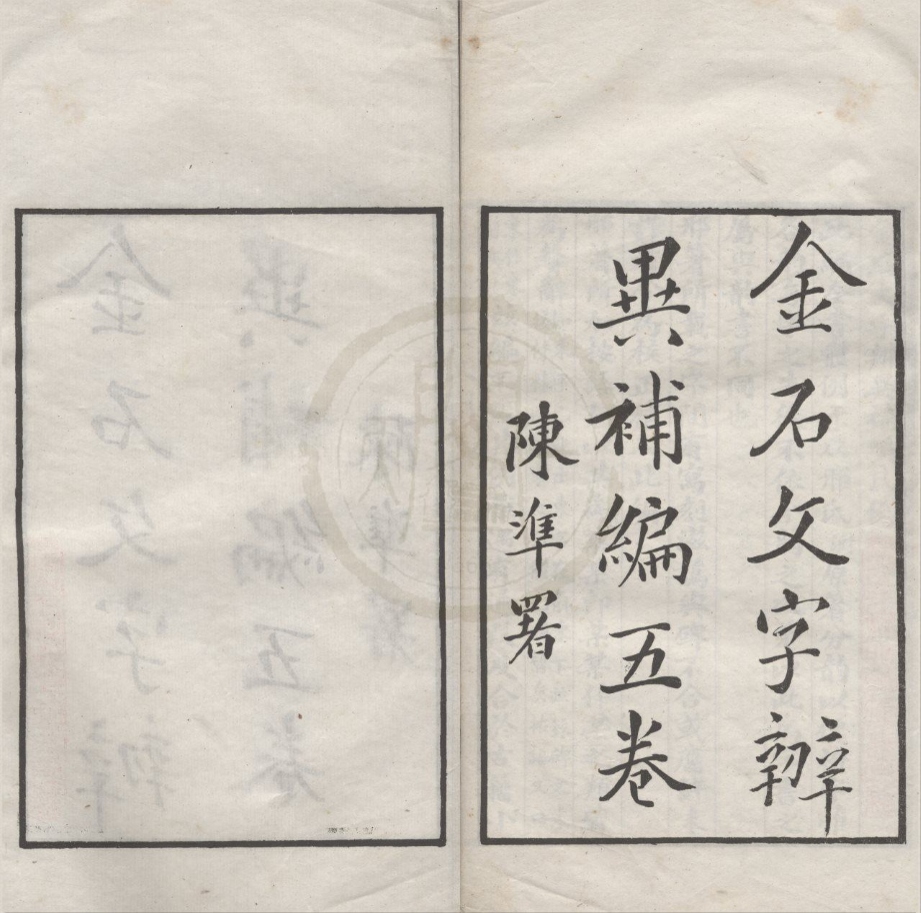 金石文字辨
異補編五卷
陳準署